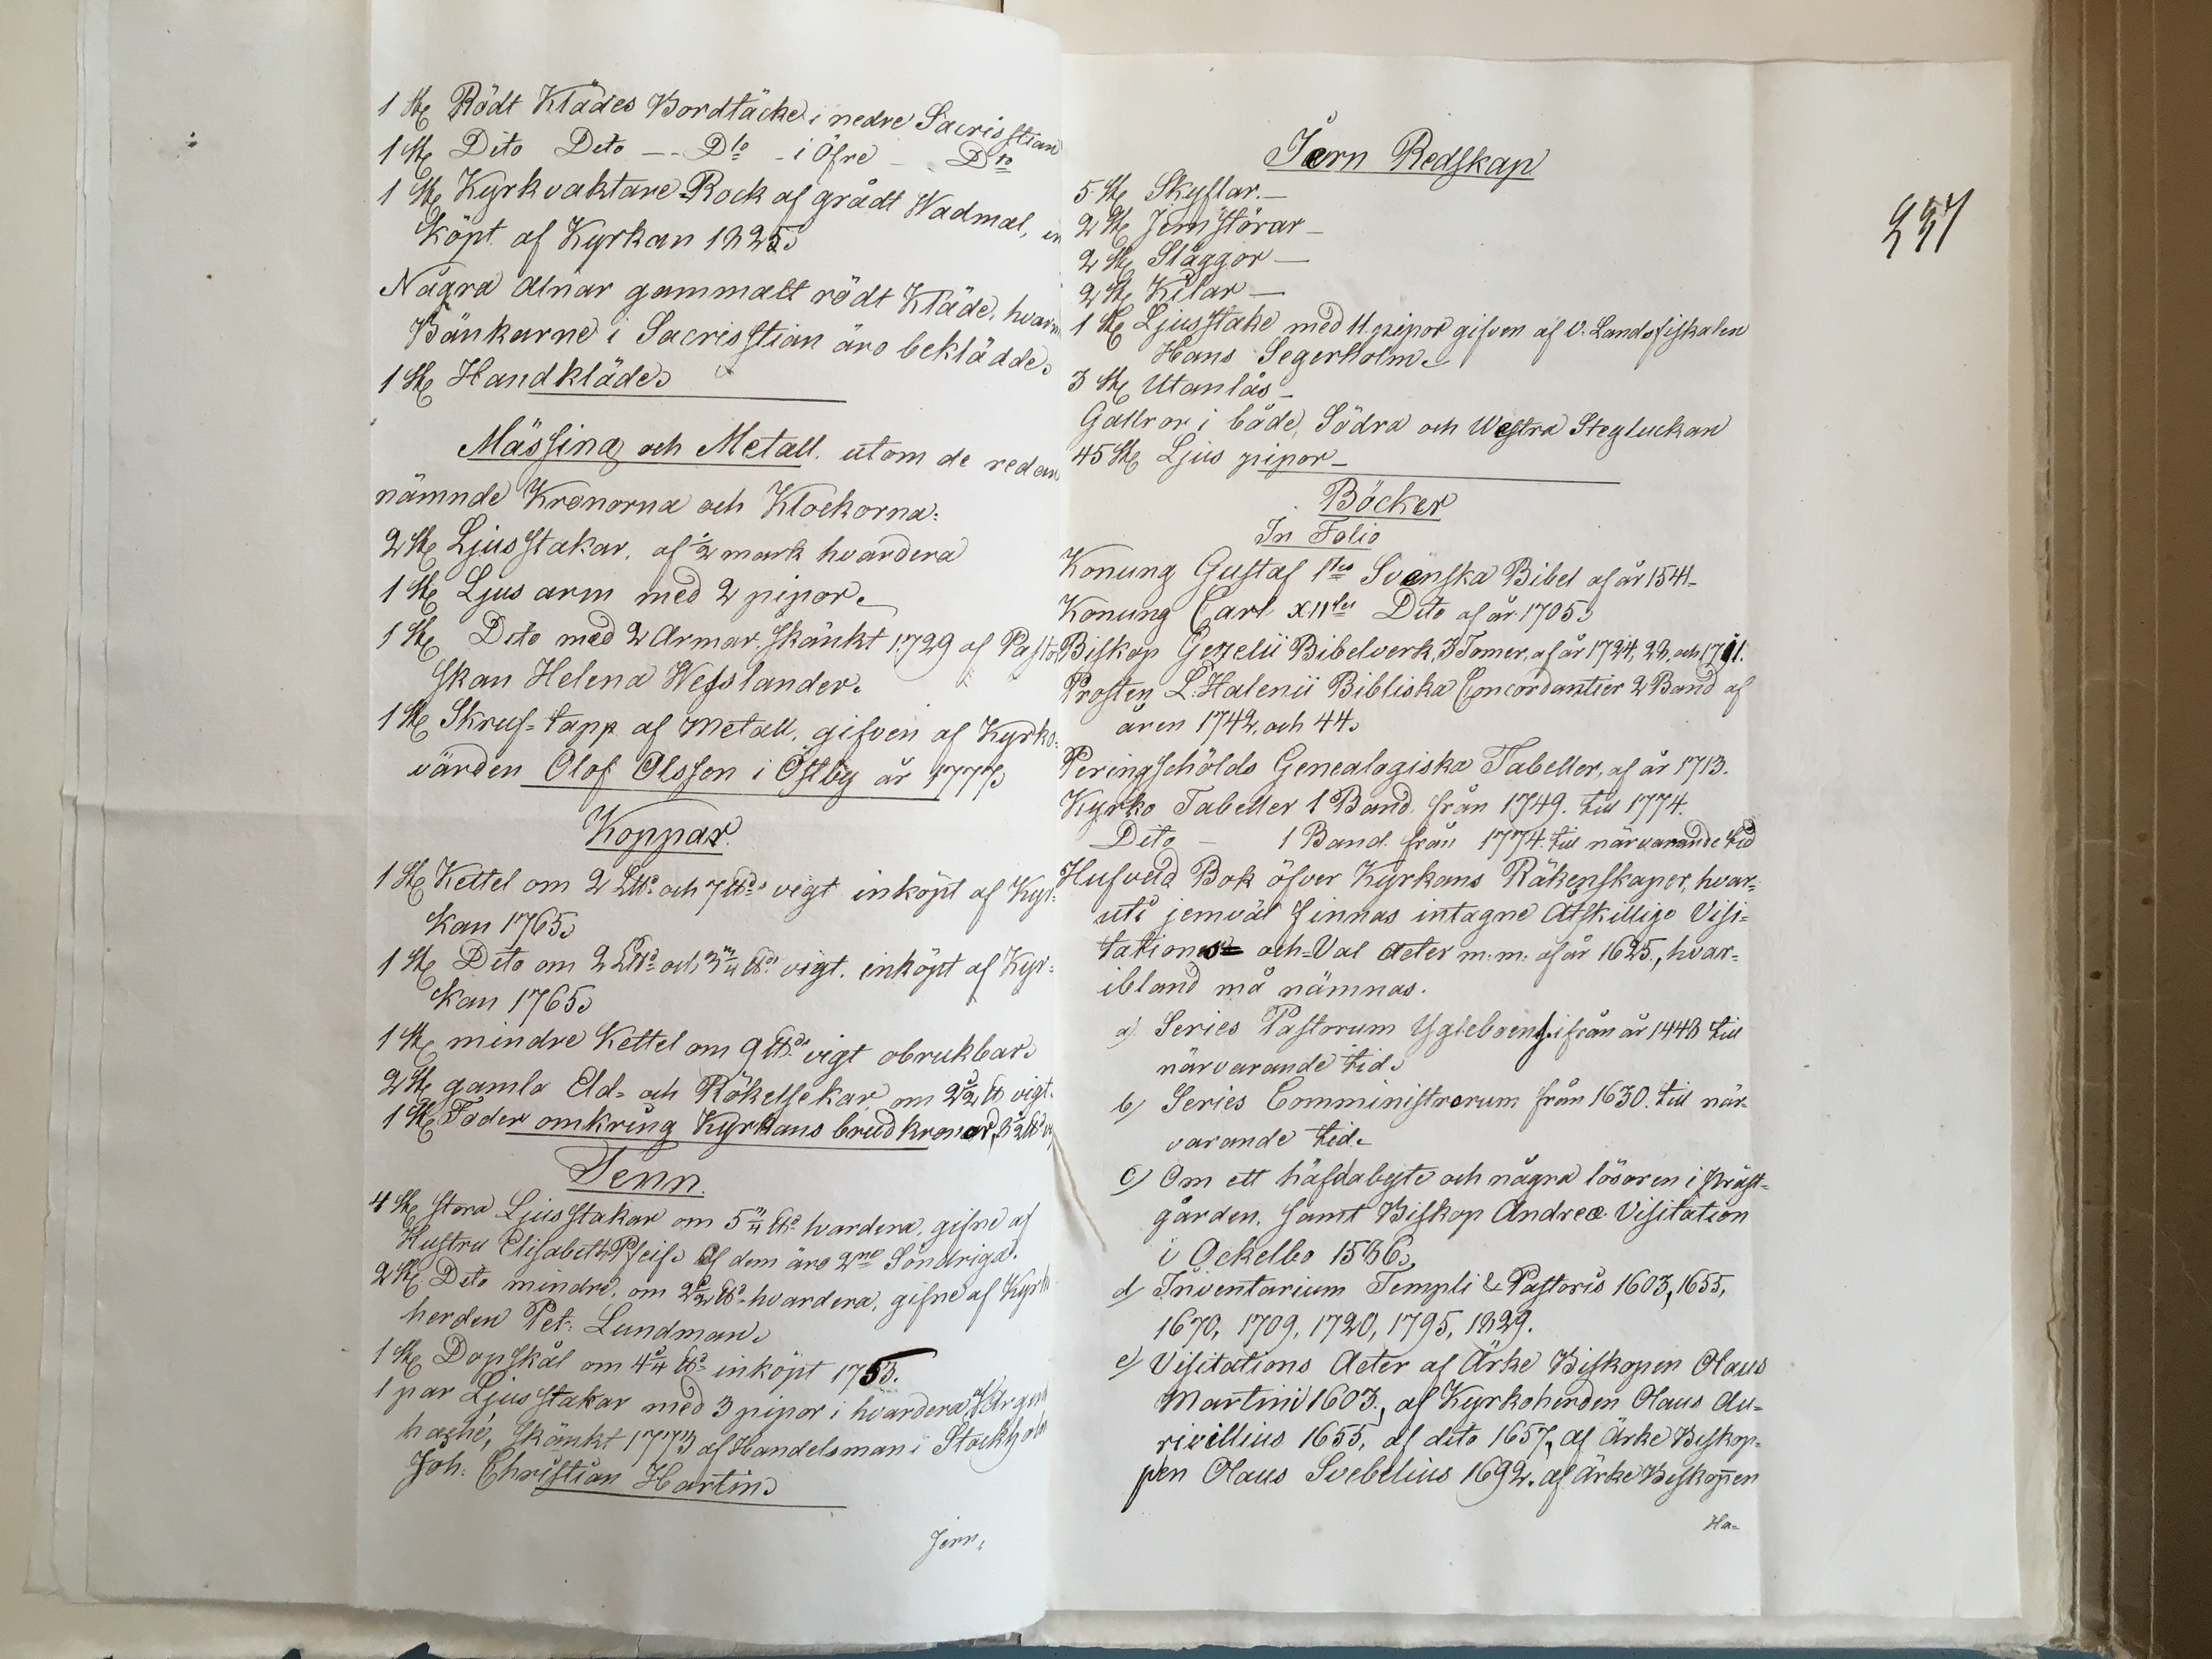 1 St Rödt Klädes Bordtäcke i nedre Sacrisstian
1 St Dito Dito -- Dto - i Öfre - Dto
1 St Kyrkvaktare Rock af grådt Wadmal, in
köpt af Kyrkan 1825.
Några Alnar gammalt rödt Kläde, hvarm
Bänkarne i Sacrisstian äro beklädde.
1 St Handkläde.
Mässing och Metall. utom de redan
nämnde Kronorna och Klockorna:
2 St Ljusstakar, af ½ mark hvardera
1 St Ljus arm med 2 pipor.
1 St Dito med 2 Armar. skänkt 1729 af Pasto
skan Helena Wesslander.
1 St Skruf=tapp af Metall, gifven af Kyrko=
värden Olof Olsson i Östby år 1777.
Koppar.
1 St Kettel om 2 L℔ och 7 ℔ vigt inköpt af Kyr=
kan 1765.
1 St Dito om 2 L℔ och ¾ ℔ vigt. inköpt af Kyr=
kan 1765.
1 St mindre Kettel om 9 ℔ vigt obrukbar.
2 St gamla Eld= och Rökelsekar om 2½ ℔ vigt.
1 St Foder omkring Kyrkans brudkronor, 3½ ℔
Tenn.
4 St stora Ljusstakar om 5 ℔ hvardera, gifne af
Hustru Elisabeth Pfeif. Af dem äro 2ne Söndriga.
2 St Dito mindre, om 2½ ℔ hvardera, gifne af Kyrk
herden Pet: Lundman.
1 St Dopskål om 4¼ ℔ inköpt 1753.
1 par Ljusstakar med 3 pipor i hvardera af Argent
haché, skänkt 1773 af Handelsman i Stockholm
Joh: Christian Hartin.
Jern,
237
Jern Redskap
5 St Skyflar.-
2 St Jernstörar -
2 St Släggor -
2 St Kilar -
1 St Ljusstake med 11 pipor gifven af v. Landsfiskalen
Hans Segerholm.
3 St Utanlås -
Gallror i både Södra och Westra Stegluckan
45 St Ljus pipor -
Böcker
In Folio
Konung Gustaf 1stes Svenska Bibel af år 1541-
Konung Carl XIItes Dito af år 1705.
Biskop Gezelii Bibelverk, 3 Tomer, af år 1724, 28, och
Prosten L. Halenii Bibliska Concordantier 2 Band af
åren 1742, och 44.
Peringschölds Genealogiska Tabeller, af år 1713.
Kyrko Tabeller 1 Band. från 1749. till 1774.
Dito - 1 Band. från 1774. till närvarande tid
Hufvud Bok öfver Kyrkans Räkenskaper, hvar=
uti jemväl finnas intagne Atskillige Visi=
tations= och=Val Acter m:m: af år 1625, hvar=
ibland må nämnas.
a) Series Pastorum Ugleboens. ifrån år 1448 till
närvarande tid.
b) Series Comministrorum från 1630. till när-
varande tid.
c) Om ett häfdabyte och några lösören i präst=
gården. samt Biskop Andreæ Visitation
i Ockelbo 1586.
d) Inventarium Templi & Pastoris 1603, 1655,
1670, 1709, 1720, 1795, 1829.
e) Visitations Acter af Ärke Biskopen Olaus
Martini 1603., af Kyrkoherden Olaus Au=
rivillius 1655, af dito 1657, af Ärke Biskop=
pen Olaus Svebelius 1692. af Ärke Biskopen
Ha=